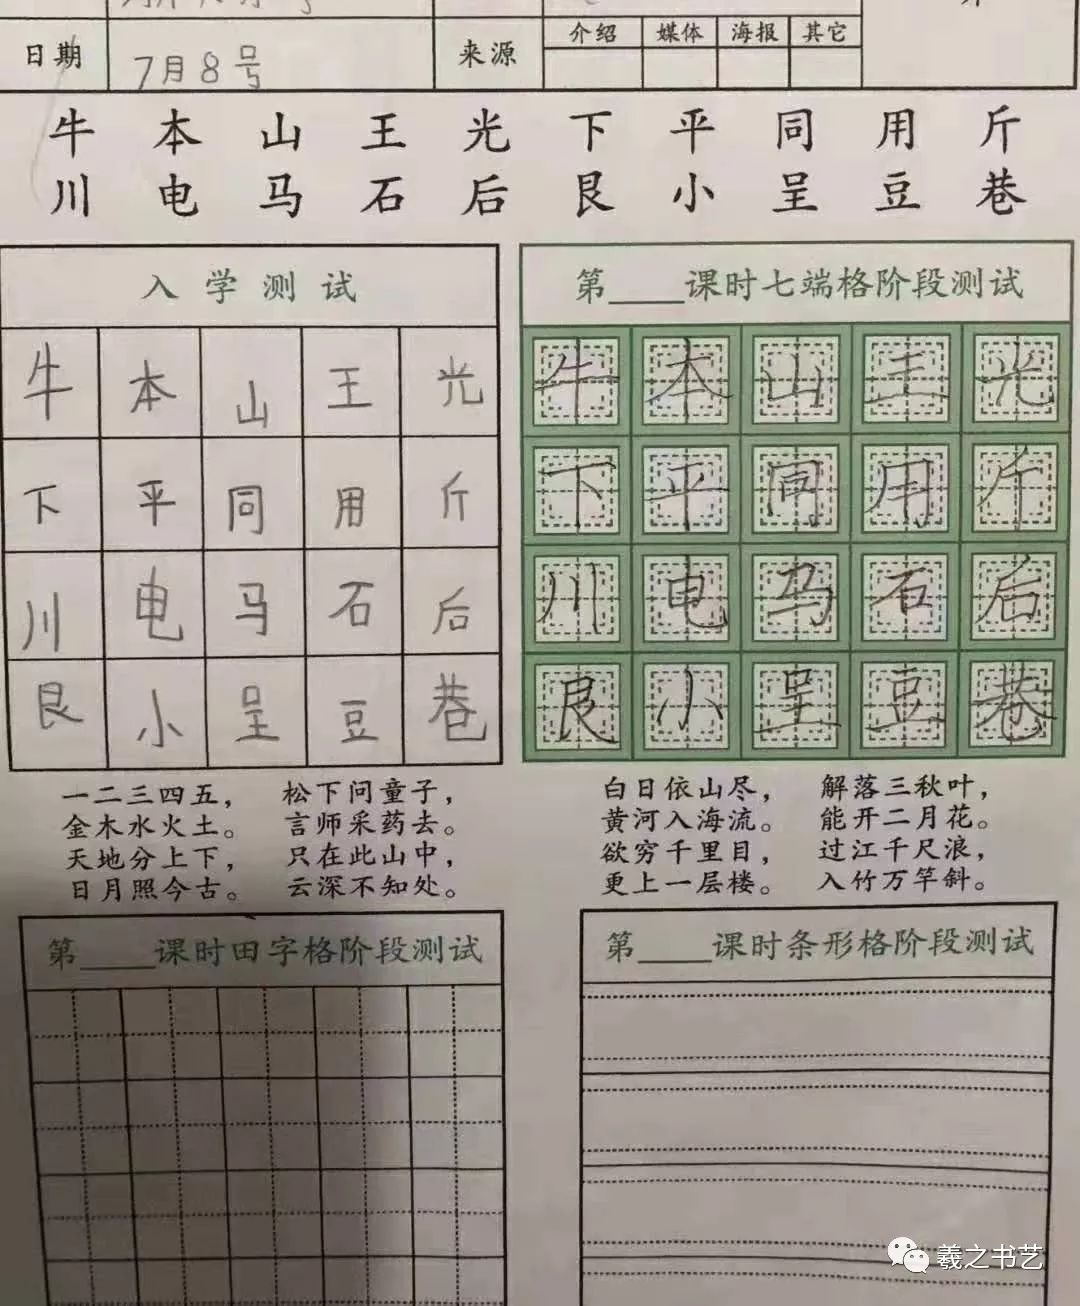 日期 7月8号 来源 介绍 媒体 海报 其它
牛 本 山 王 光 下 平 同 用 斤
川 电 马 石 后 艮 小 呈 豆 巷
入学测试
牛 本 山 王 光
下 平 同 用 斤
川 电 马 石 后
艮 小 呈 豆 巷
第____课时七端格阶段测试
牛 本 山 王 光
下 平 同 用 斤
川 电 马 石 后
艮 小 呈 豆 巷
一二三四五， 松下问童子，
金木水火土。 言师采药去。
天地分上下， 只在此山中，
日月照今古。 云深不知处。
白日依山尽， 解落三秋叶，
黄河入海流。 能开二月花。
欲穷千里目， 过江千尺浪，
更上一层楼。 入竹万竿斜。
第____课时田字格阶段测试
第____课时条形格阶段测试
羲之书艺